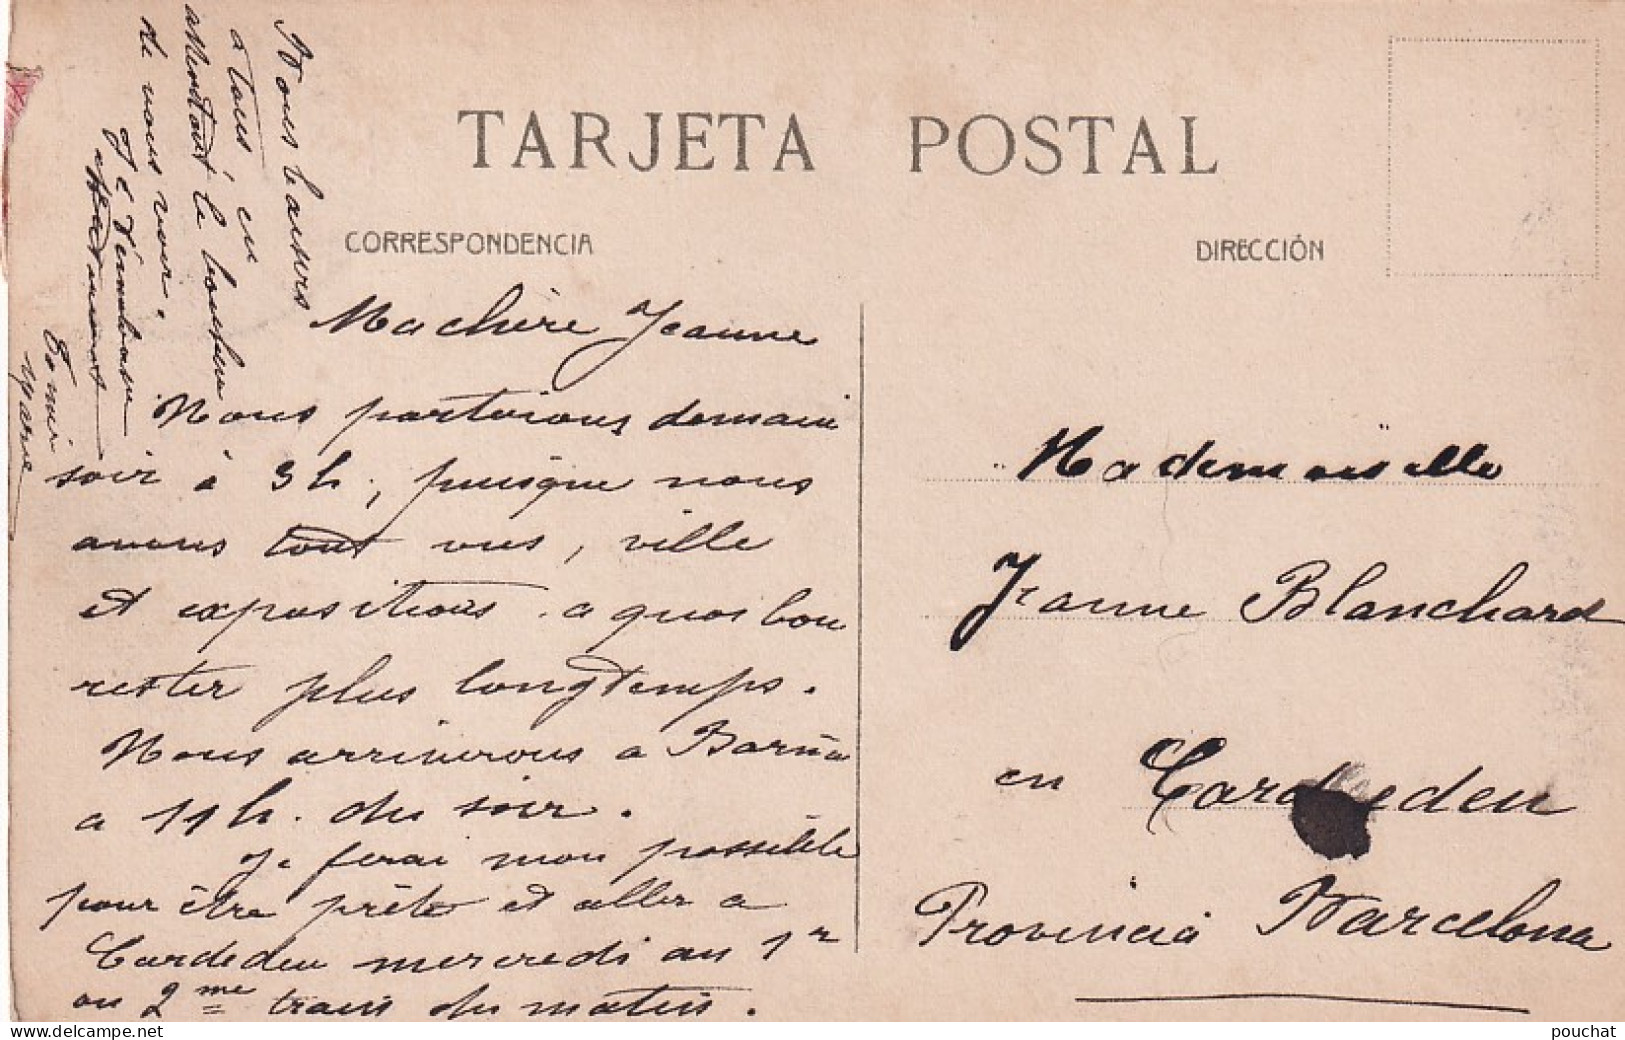 TARJETA POSTAL
CORRESPONDENCIA
DIRECCIÓN
Ma chère Jeanne
Nous partirons demain
soir à 3 h, puisque nous
avons tout vus, ville
et expositions. a quoi bon
rester plus longtemps.
Nous arriverons a Barña
a 11 h. du soir.
Je ferai mon possible
pour être prête et aller a
Cardedeu mercredi au 1er
ou 2me train du matin.
Nous baisers
a tous, en
attendant le bonheur
de nous voir.
Je t'embrasse
Marie
Mademoiselle
Jeanne Blanchard
en Cardedeu
Provincia Barcelona
pouchat
www.delcampe.net